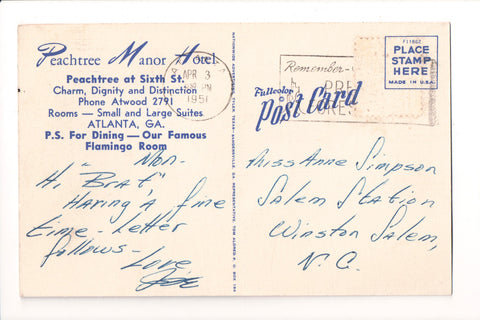 Peachtree Manor Hotel
Peachtree at Sixth St.
Charm, Dignity and Distinction
Phone Atwood 2791
Rooms — Small and Large Suites
ATLANTA, GA.
P.S. For Dining — Our Famous
Flamingo Room
Mon.
Hi, "Brat",
Having a fine
time - Letter
follows -
Love,
Joe
APR 3
PM
1951
Remember
Fullcolor
Post Card
F11802
PLACE
STAMP
HERE
MADE IN U.S.A.
Miss Anne Simpson
Salem Station
Winston Salem,
N.C.